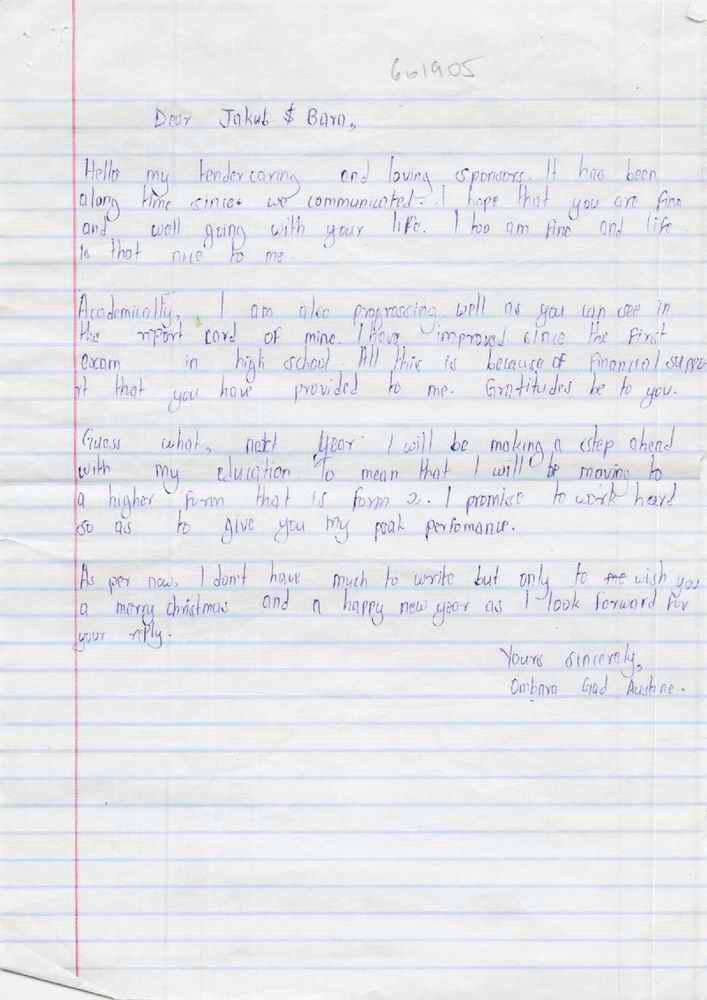 601905
Dear Jakub & Bara,
Hello my tender caring and loving sponsors. It has been
along time since we communicated. I hope that you are fine
and well going with your life. I too am fine and life
is that nice to me.
Academically, I am also progressing well as you can see in
the report card of mine. I have improved since the first
exam in high school. All this is because of financial suppo
rt that you have provided to me. Gratitudes be to you.
Guess what, next year I will be making a step ahead
with my education. To mean that I will be moving to
a higher form that is form 2. I promise to work hard
so as to give you my peak perfomance.
As per now, I don't have much to write but only to me wish you
a merry christmas and a happy new year as I look forward for
your reply.
Yours sincerely,
Ombara Gad Austine.